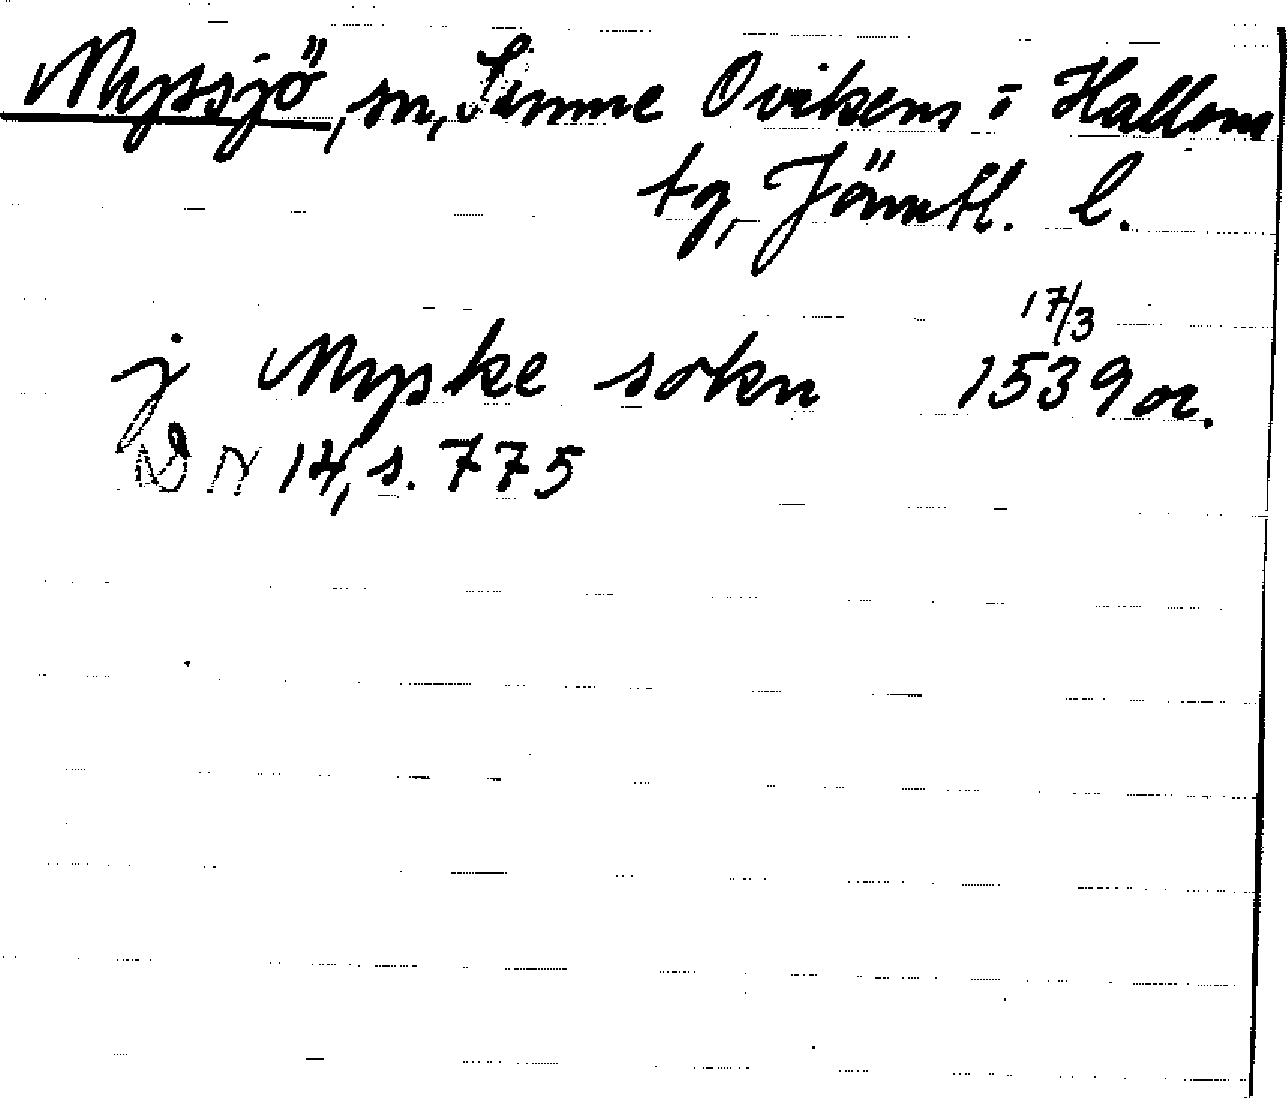 Myssjö, sn, Sunne Ovikens o Hallens
tg, Jämtl. l.
j Myske sokn 17/3 1539 or.
DN 14, s. 775